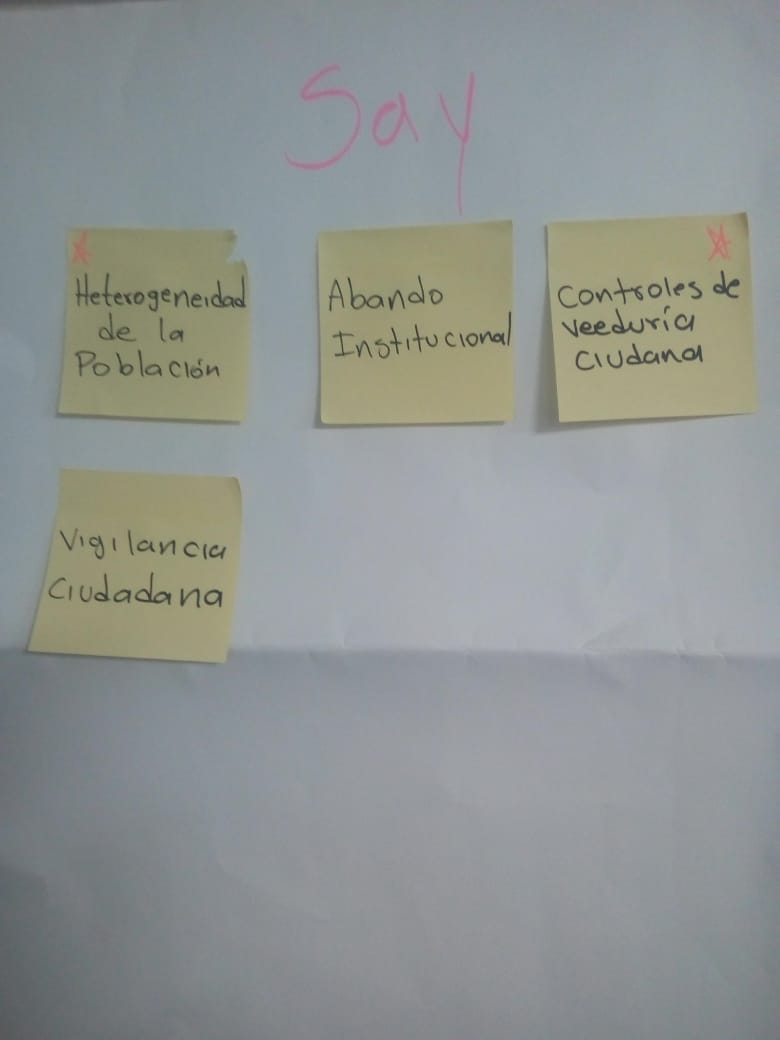 Say
Heterogeneidad
de la
Población
Abando
Institucional
Controles de
veeduría
ciudana
Vigilancia
Ciudadana